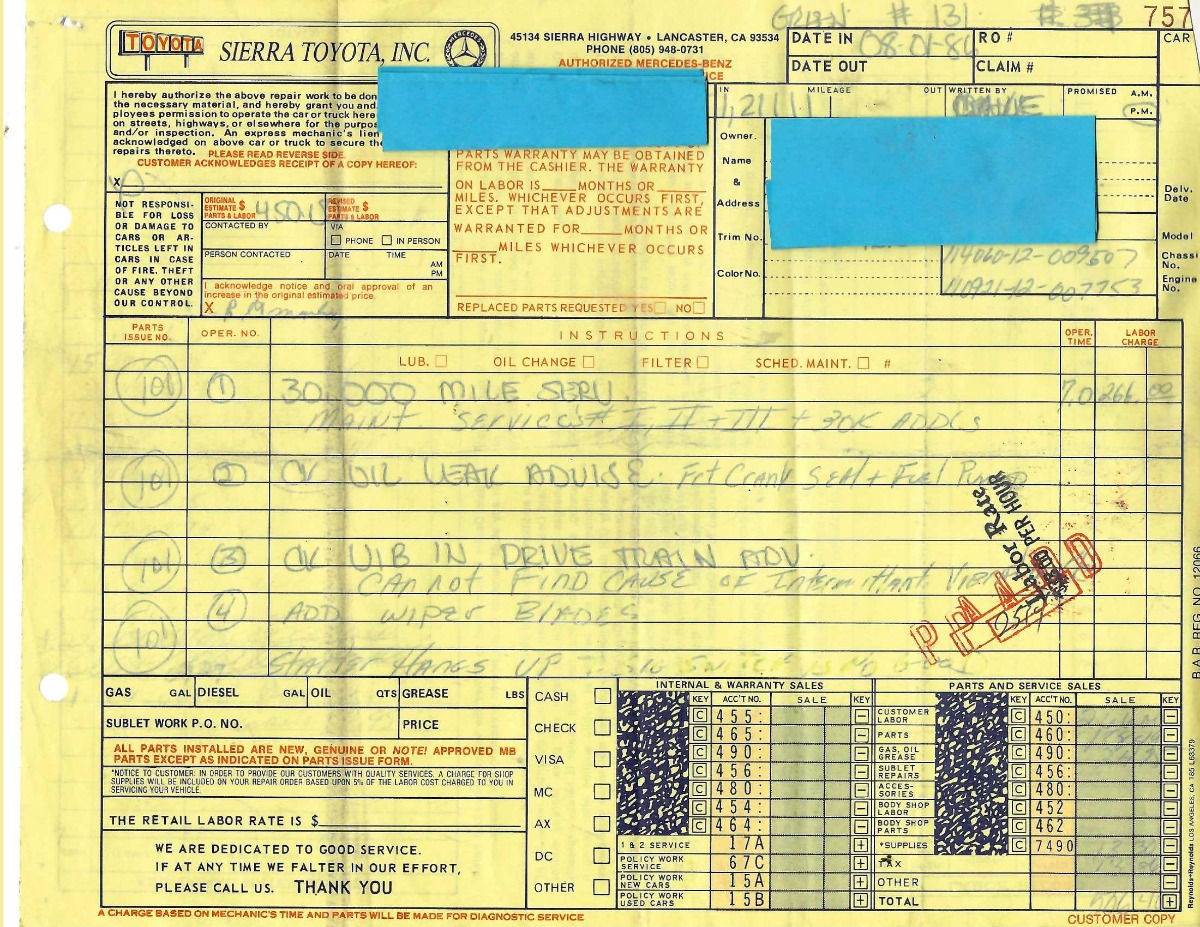 GREEN # 131
757
TOYOTA
SIERRA TOYOTA, INC.
45134 SIERRA HIGHWAY • LANCASTER, CA 93534
PHONE (805) 948-0731
AUTHORIZED MERCEDES-BENZ
DATE IN 08-01-86
RO #
CAR
DATE OUT
CLAIM #
I hereby authorize the above repair work to be don
the necessary material, and hereby grant you and
ployees permission to operate the car or truck here
on streets, highways, or elsewhere for the purpos
and/or inspection. An express mechanic's lien
acknowledged on above car or truck to secure the
repairs thereto. PLEASE READ REVERSE SIDE.
CUSTOMER ACKNOWLEDGES RECEIPT OF A COPY HEREOF:
X
IN MILEAGE OUT
WRITTEN BY
PROMISED A.M.
P.M.
PARTS WARRANTY MAY BE OBTAINED
FROM THE CASHIER. THE WARRANTY
ON LABOR IS MONTHS OR
MILES. WHICHEVER OCCURS FIRST,
EXCEPT THAT ADJUSTMENTS ARE
WARRANTED FOR MONTHS OR
MILES WHICHEVER OCCURS
FIRST.
REPLACED PARTS REQUESTED YES NO
Owner.
Name
&
Address
Trim No.
Color No.
Delv.
Date
Model
Chassi
No.
Engine
No.
114060-12-009607
110921-12-007753
NOT RESPONSI-
BLE FOR LOSS
OR DAMAGE TO
CARS OR AR-
TICLES LEFT IN
CARS IN CASE
OF FIRE, THEFT
OR ANY OTHER
CAUSE BEYOND
OUR CONTROL.
ORIGINAL ESTIMATE $ PARTS & LABOR
REVISED ESTIMATE $ PARTS & LABOR
CONTACTED BY
VIA
PHONE IN PERSON
PERSON CONTACTED
DATE TIME
AM
PM
I acknowledge notice and oral approval of an
increase in the original estimated price.
X
PARTS ISSUE NO.
OPER. NO.
INSTRUCTIONS
OPER. TIME
LABOR CHARGE
LUB. OIL CHANGE FILTER SCHED. MAINT. #
101 1 30.000 MILE SERV 7.0 266.00
MAINT SERVICES # I, II + III + 30K ADDLS
101 2 CK OIL LEAK ADVISE. Frt Crank Seal + Fuel Pump
101 3 CK VIB IN DRIVE TRAIN ADV.
CANNOT FIND CAUSE OF Intermittant
101 4 ADD WIPER BLADES
Starter HANGS UP
Labor Rate
PER HOUR
PAID
GAS GAL DIESEL GAL OIL QTS GREASE LBS
SUBLET WORK P.O. NO. PRICE
ALL PARTS INSTALLED ARE NEW, GENUINE OR NOTE! APPROVED MB
PARTS EXCEPT AS INDICATED ON PARTS ISSUE FORM.
*NOTICE TO CUSTOMER: IN ORDER TO PROVIDE OUR CUSTOMERS WITH QUALITY SERVICES. A CHARGE FOR SHOP
SUPPLIES WILL BE INCLUDED ON YOUR REPAIR ORDER BASED UPON 5% OF THE LABOR COST CHARGED TO YOU IN
SERVICING YOUR VEHICLE.
THE RETAIL LABOR RATE IS $
WE ARE DEDICATED TO GOOD SERVICE.
IF AT ANY TIME WE FALTER IN OUR EFFORT,
PLEASE CALL US. THANK YOU
CASH
CHECK
VISA
MC
AX
DC
OTHER
INTERNAL & WARRANTY SALES
KEY ACC'T NO. SALE KEY
C 455: −
C 465: −
C 490: −
C 456: −
C 480: −
C 454: −
C 464: −
1 & 2 SERVICE 17A +
POLICY WORK SERVICE 67C +
POLICY WORK NEW CARS 15A +
POLICY WORK USED CARS 15B +
PARTS AND SERVICE SALES
KEY ACC'T NO. SALE KEY
CUSTOMER LABOR C 450: −
PARTS C 460: −
GAS, OIL GREASE C 490: −
SUBLET REPAIRS C 456: −
ACCES-SORIES C 480: −
BODY SHOP LABOR C 452 −
BODY SHOP PARTS C 462 −
*SUPPLIES C 7490 −
TAX −
OTHER −
TOTAL +
B.A.R. REG. NO. 12066
Reynolds+Reynolds LOS ANGELES, CA
A CHARGE BASED ON MECHANIC'S TIME AND PARTS WILL BE MADE FOR DIAGNOSTIC SERVICE
CUSTOMER COPY